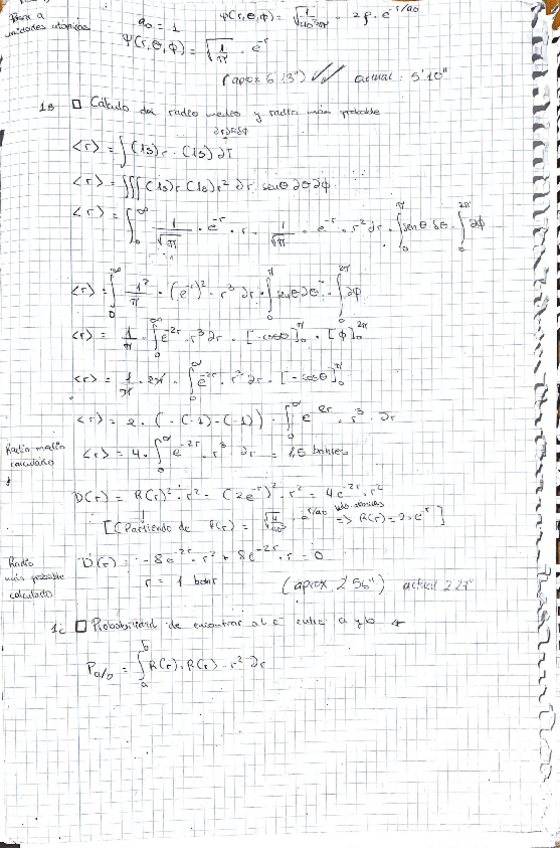 Pasar a unidades atómicas
a₀ = 1
ψ(r,θ,φ) = √(1/π) · e^-r
(aprox 6'13") ✓✓ actual: 5'10"
1B □ Cálculo del radio medio y radio más probable
∂r∂θ∂φ
<r> = ∫(1s) r · (1s) ∂τ
<r> = ∭(1s) r (1s) r² ∂r · senθ ∂θ ∂φ
<r> = ∫₀^∞ 1/√π · e^-r · r · 1/√π · e^-r · r² ∂r · ∫₀^π senθ ∂θ · ∫₀^2π ∂φ
<r> = ∫₀^∞ 1²/π · (e^-r)² · r³ ∂r · ∫₀^π senθ ∂θ · ∫₀^2π ∂φ
<r> = 1/π · ∫₀^∞ e^-2r · r³ ∂r · [-cosθ]₀^π · [φ]₀^2π
<r> = 1/π · 2π · ∫₀^∞ e^-2r · r³ ∂r · [-cosθ]₀^π
<r> = 2 · (-(-1)-(-1)) · ∫₀^∞ e^-2r · r³ · ∂r
Radio medio calculado
<r> = 4 · ∫₀^∞ e^-2r · r³ ∂r = 1,5 bohrs
D(r) = R(r)² · r² = (2e^-r)² · r² = 4e^-2r · r²
[(Partiendo de R(r) = e^-r/a₀ => R(r) = 2 · e^-r]
Radio más probable calculado
D'(r) = -8e^-2r · r² + 8e^-2r · r = 0
r = 1 bohr
(aprox 2'56") actual 2'23"
1c □ Probabilidad de encontrar al e⁻ entre a y b
P a/b = ∫ₐ^b R(r) · R(r) · r² ∂r